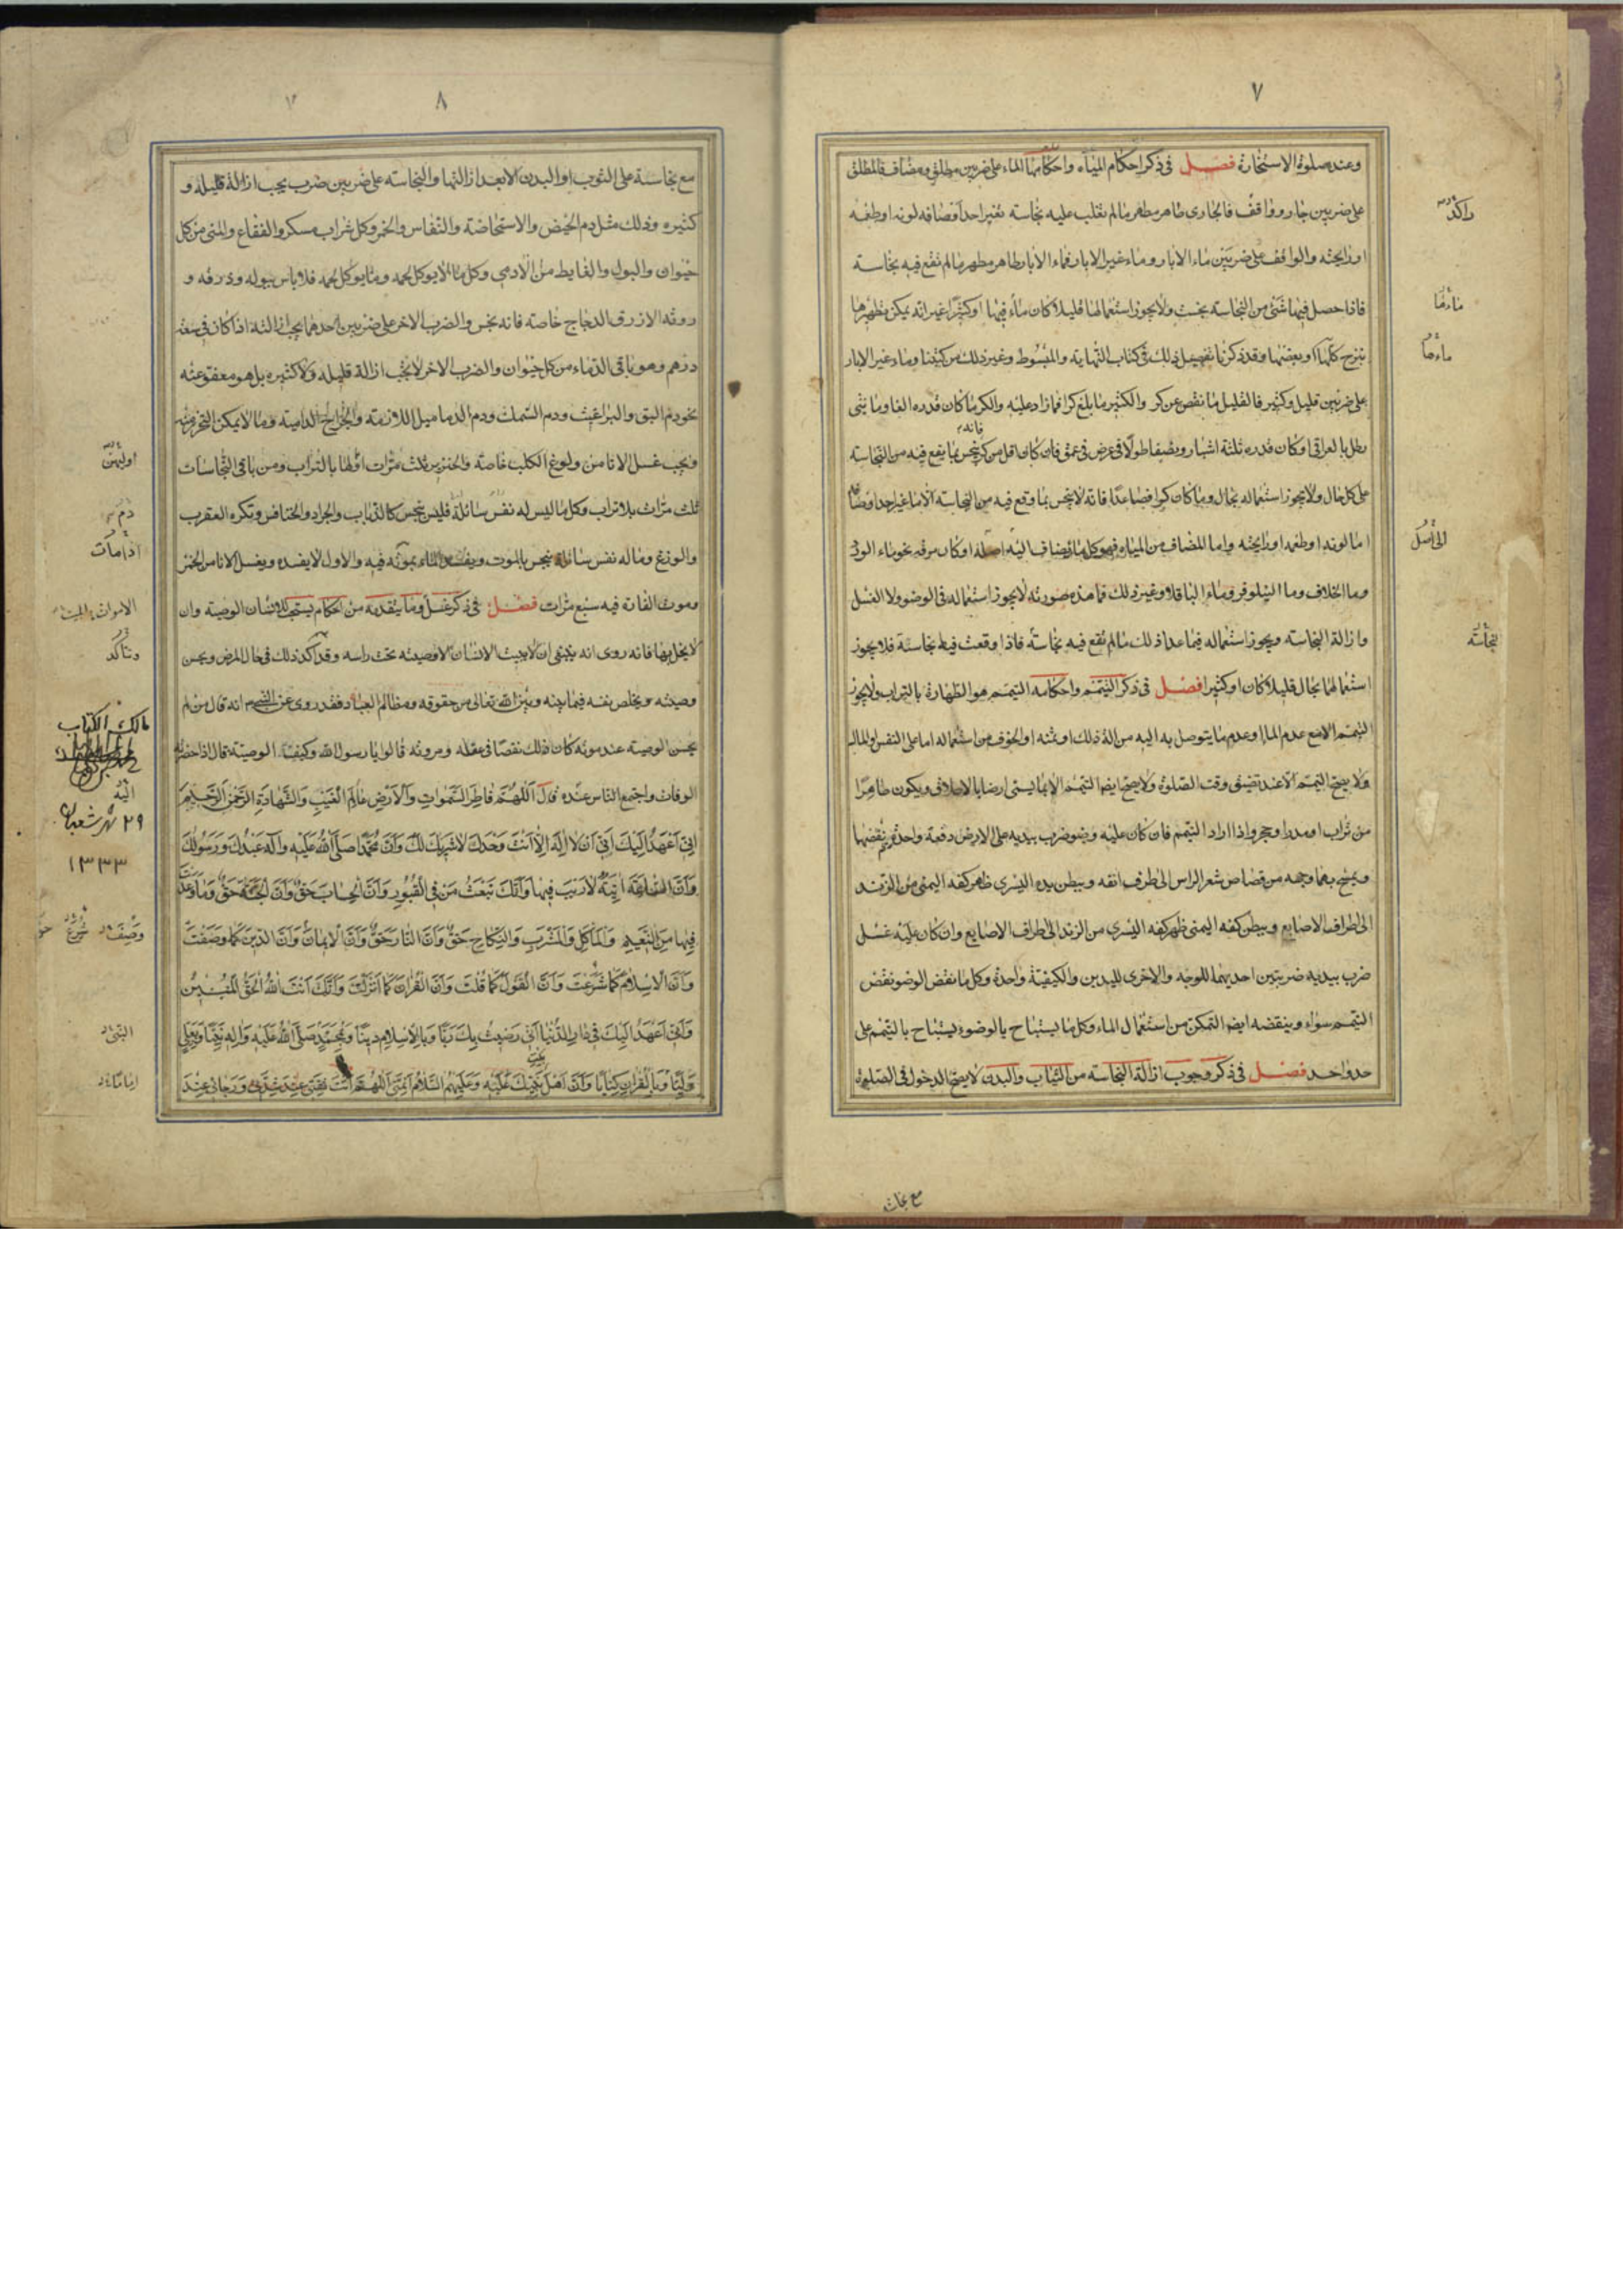 ٧
وعند صلوة الاستخارة فصل فى ذكر احكام المياه واحكامها الماء على ضربين مطلق ومضاف فالمطلق
على ضربين جار وواقف فالجارى طاهر مطهر ما لم تغلب عليه نجاسة تغير احد اوصافه لونه او طعمه
او رايحته والواقف على ضربين ماء الابار وماء غير الابار فماء الابار طاهر مطهر ما لم تقع فيه نجاسة
فاذا حصل فيها شئ من النجاسة نجست ولا يجوز استعمالها قليلا كان ماء فيها او كثيرا غير انه يمكن تطهيرها
بنزح كلها او بعضها وقد ذكرنا تفصيل ذلك فى كتاب النهاية والمبسوط وغير ذلك من كتبنا وماء غير الابار
على ضربين قليل وكثير فالقليل ما نقص عن كر والكثير ما بلغ كرا فما زاد عليه والكر ما كان قدره الفا ومايتى
رطل بالعراقى او كان قدره ثلثة اشبار ونصفا طولا فى عرض فى عمق فان كان اقل من كر فانه ينجس بما يقع فيه من النجاسة
على كل حال ولا يجوز استعماله بحال وما كان كرا فصاعدا فانه لا ينجس بما وقع فيه من النجاسة الا ما غير احد اوصافه
اما لونه او طعمه او رايحته واما المضاف من المياه فهو كل ماء يضاف اليه اصله او كان مرقه نحو ماء الورد
وما الخلاف وما النيلوفر وماء الباقلا وغير ذلك فما هذه صورته لا يجوز استعماله فى الوضو ولا الغسل
وازالة النجاسة ويجوز استعماله فيما عدا ذلك ما لم تقع فيه نجاسة فاذا وقعت فيه نجاسة فلا يجوز
استعمالها بحال قليلا كان او كثيرا فصل فى ذكر التيمم واحكامه التيمم هو الطهارة بالتراب ولا يجوز
التيمم الا مع عدم الما او عدم ما يتوصل به اليه من الة ذلك او ثمنه او الخوف من استعماله اما على النفس او المال
ولا يصح التيمم الا عند تضيق وقت الصلوة ولا يصح ايضا التيمم الا بما يسمى ارضا بالاطلاق ويكون طاهرا
من تراب او مدر او حجر واذا اراد التيمم فان كان عليه وضو ضرب بيديه على الارض دفعة واحدة ثم نفضهما
ويمسح بهما وجهه من قصاص شعر الراس الى طرف انفه وببطن يده اليسرى ظاهر كفه اليمنى من الزند
الى اطراف الاصابع وببطن كفه اليمنى ظهر كفه اليسرى من الزند الى اطراف الاصابع وان كان عليه غسل
ضرب بيديه ضربتين احديهما للوجه والاخرى لليدين والكيفية واحدة وكل ما نقض الوضو نقض
التيمم سواء وينقضه ايضا التمكن من استعمال الماء وكل ما يستباح بالوضوء يستباح بالتيمم على
حد واحد فصل فى ذكر وجوب ازالة النجاسة من الثياب والبدن لا يصح الدخول فى الصلوة
راكد
ماءها
ماءها
الى اصل
نجاسة
مع نجاسة
٨
مع نجاسة على الثوب او البدن الا بعد ازالتها والنجاسة على ضربين ضرب يجب ازالة قليله و
كثيره وذلك مثل دم الحيض والاستحاضة والنفاس والخمر وكل شراب مسكر والفقاع والمنى من كل
حيوان والبول والغايط من الادمى وكل ما لا يوكل لحمه وما يوكل لحمه فلا باس ببوله وذرقه و
روثه الا ذرق الدجاج خاصة فانه نجس والضرب الاخر على ضربين احدهما يجب ازالته اذا كان فى سعة
درهم وهو باقى الدماء من كل حيوان والضرب الاخر لا يجب ازالة قليله ولا كثيره بل هو معفو عنه
نحو دم البق والبراغيث ودم السمك ودم الدماميل اللازمة والجراح الدامية وما لا يمكن التحرز منه
ويجب غسل الانا من ولوغ الكلب خاصة والخنزير ثلث مرات اولها بالتراب ومن باقى النجاسات
ثلث مرات بلا تراب وكل ما ليس له نفس سائلة فليس بنجس كالذباب والجراد والخنافس وتكره العقرب
والوزغ وما له نفس سائلة ينجس بالموت ويفسد الماء بموته فيه والاول لا يفسده ويغسل الانا من الخمر
وموت الفارة فيه سبع مرات فصل فى ذكر غسل وما يتقدمه من احكام يستحب للانسان الوصية وان
لا يخل بها فانه روى انه ينبغى ان لا يبيت الانسان الا ووصيته تحت راسه وقد اكد ذلك فى حال المرض ويحسن
وصيته ويخلص نفسه فيما بينه وبين الله تعالى من حقوقه ومظالم العباد فقد روى عن النبى انه قال من لم
يحسن الوصية عند موته كان ذلك نقصا فى عقله ومروته قالوا يا رسول الله وكيف الوصية قال اذا حضرته
الوفات واجتمع الناس عنده قال اللهم فاطر السموات والارض عالم الغيب والشهادة الرحمن الرحيم
انى اعهد اليك انى اشهد ان لا اله الا انت وحدك لا شريك لك وان محمدا صلى الله عليه وآله عبدك ورسولك
وان الساعة اتية لا ريب فيها وانك تبعث من فى القبور وان الحساب حق وان الجنة حق وما وعدت
فيها من النعيم والماكل والمشرب والنكاح حق وان النار حق وان الايمان وان الدين كما وصفت
وان الاسلام كما شرعت وان القول كما قلت وان القران كما انزلت وانك انت الله الحق المبين
وانى اعهد اليك فى دار الدنيا انى رضيت بك ربا وبالاسلام دينا وبمحمد صلى الله عليه واله نبيا وبعلى
وليا وبالقران كتابا وان اهل بيت نبيك عليه وعليهم السلام ائمتى اللهم انت ثقتى عند شدتى ورجائى عند
اوليهن
دم
اذا مات
الاموات
وتاكد
مالك الكتاب
٢٩ شهر شعبان
١٣٣٣
وصف شرع
النبى
اماما